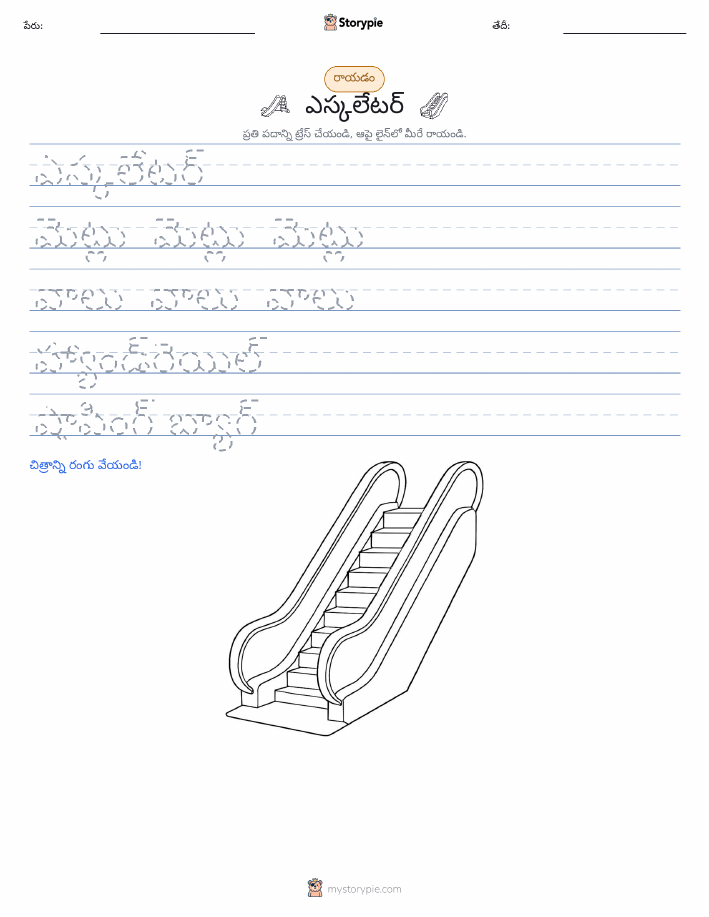 పేరు:
Storypie
తేదీ:
రాయడం
ఎస్కలేటర్
ప్రతి పదాన్ని ట్రేస్ చేయండి, ఆపై లైన్‌లో మీరే రాయండి.
ఎస్కలేటర్
మెట్లు మెట్లు మెట్లు
వాలు వాలు వాలు
హ్యాండ్‌రెయిల్
షాపింగ్ బ్యాగ్
చిత్రాన్ని రంగు వేయండి!
mystorypie.com